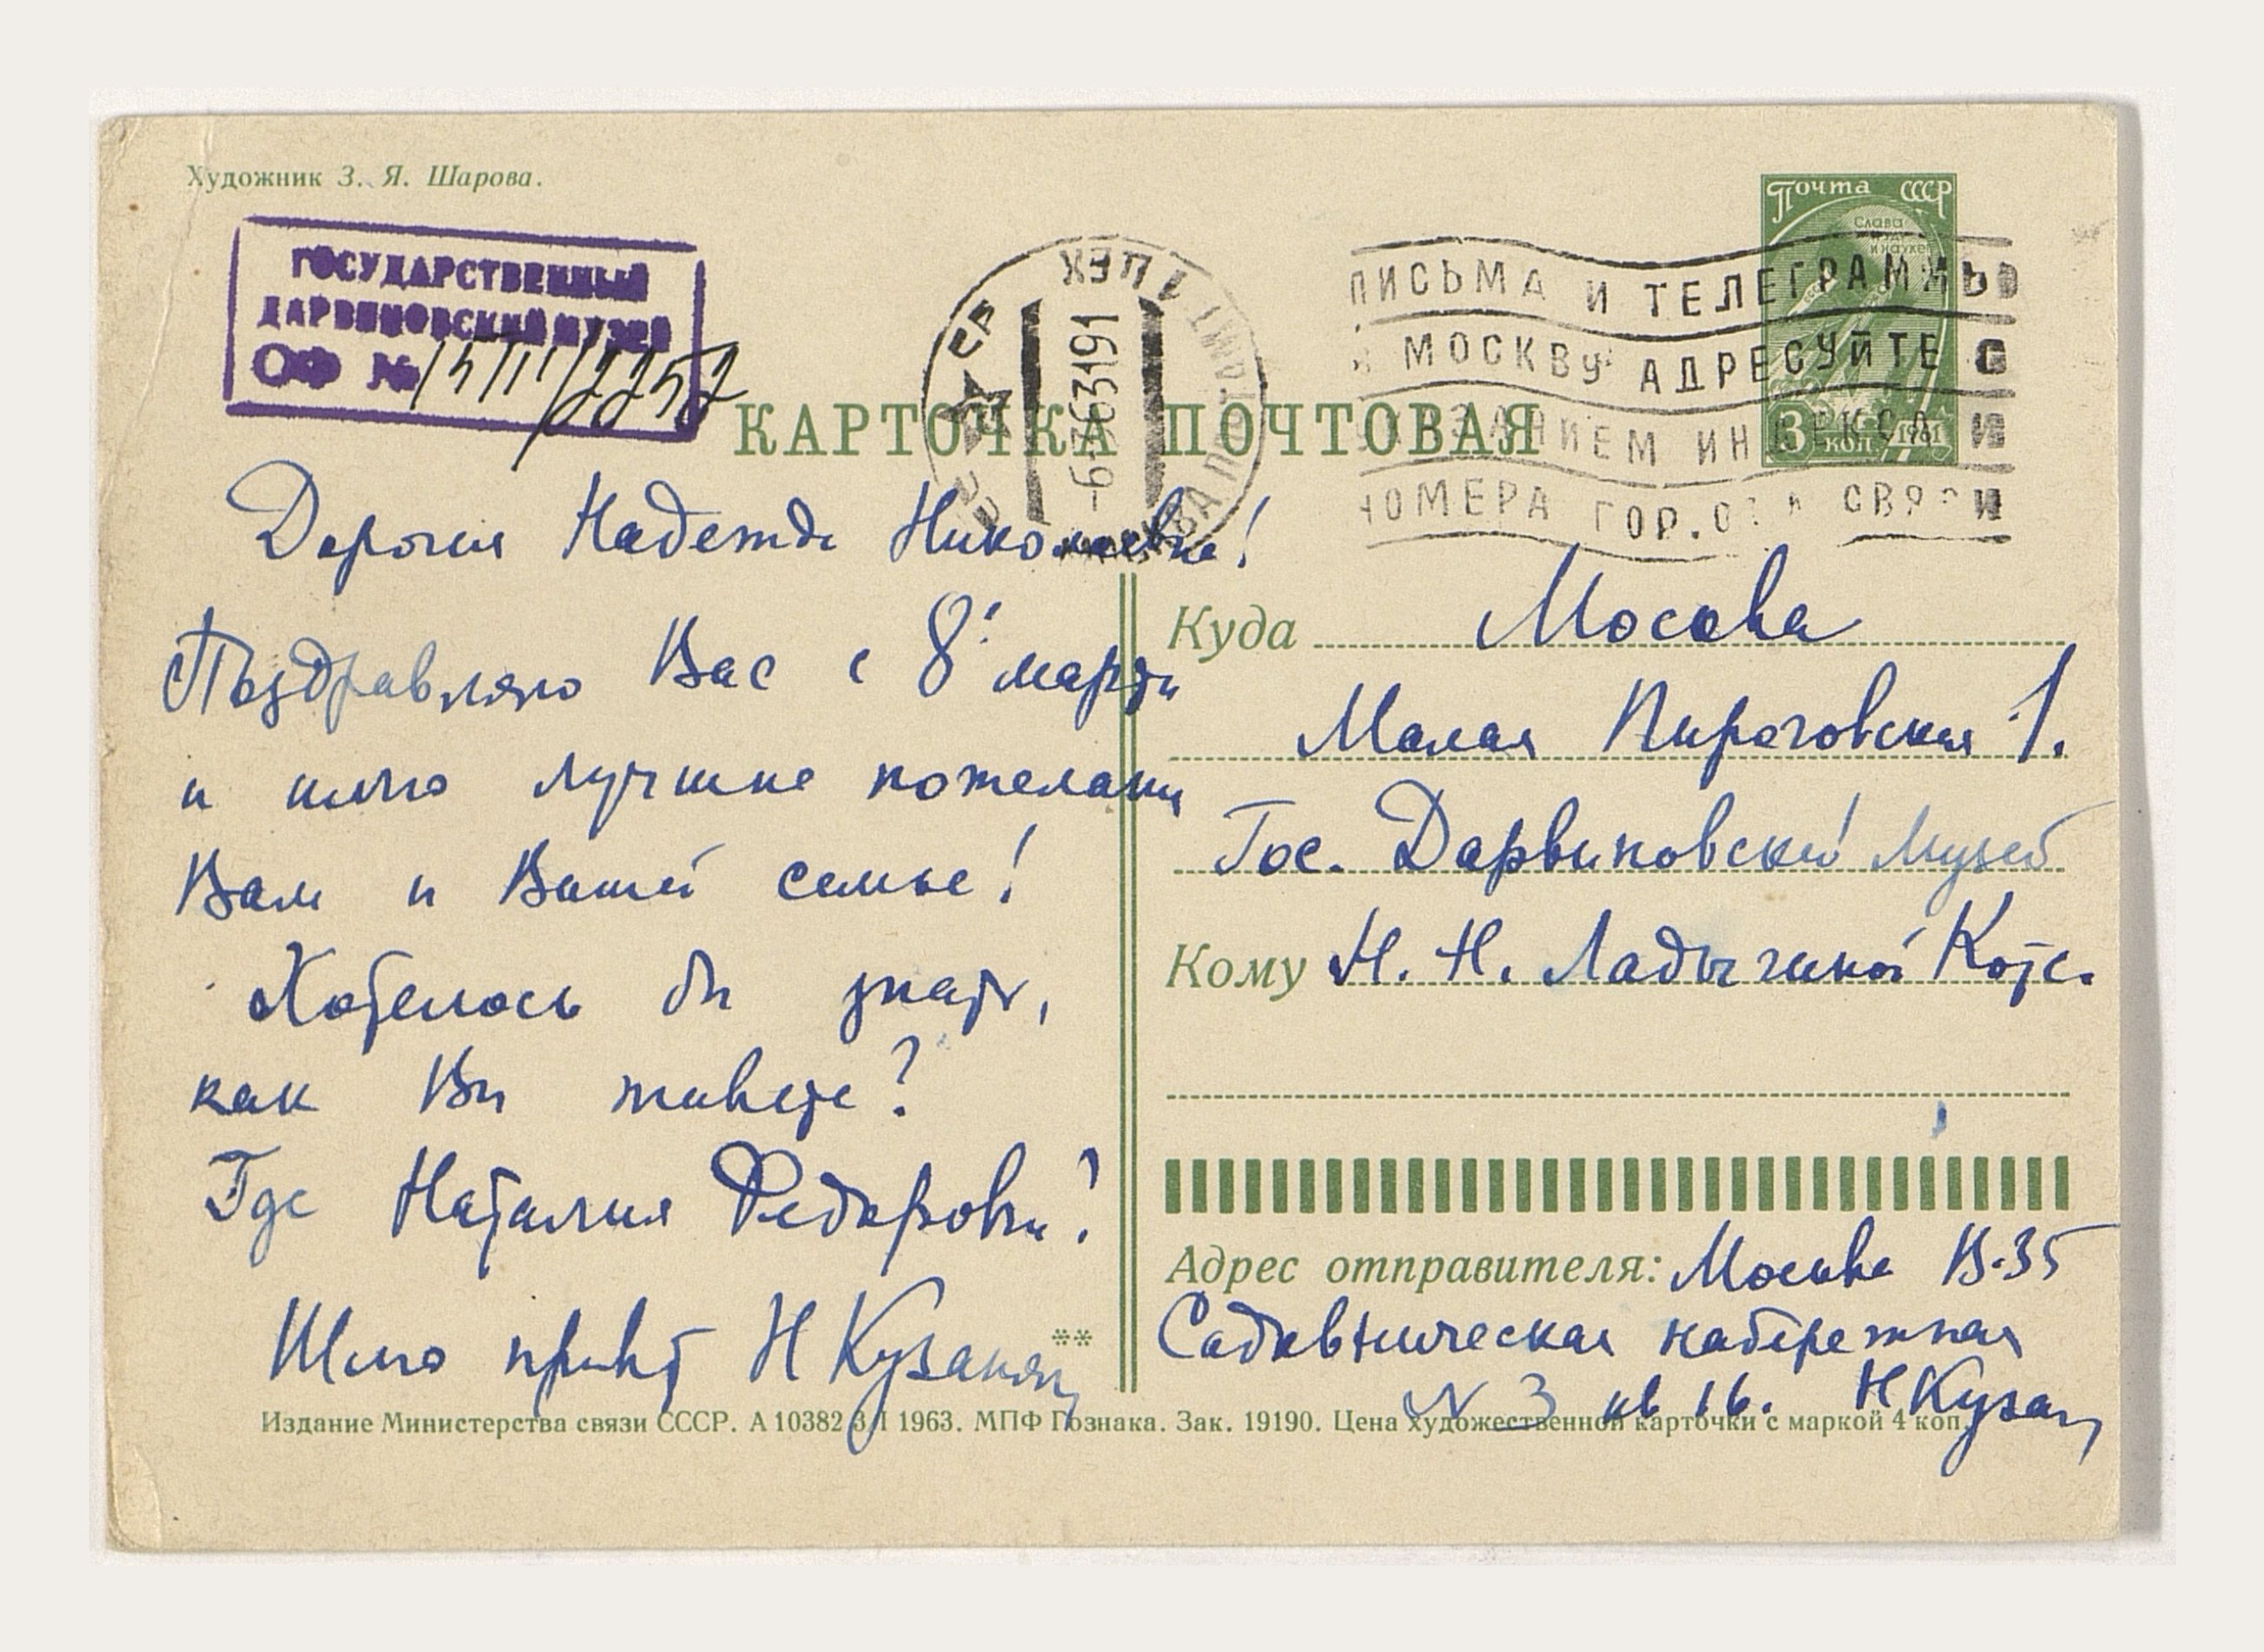 Художник З. Я. Шарова.
ГОСУДАРСТВЕННЫЙ
ДАРВИНОВСКИЙ МУЗЕЙ
ОФ №
КАРТОЧКА ПОЧТОВАЯ
Почта СССР
Слава
и науке
3 коп 1961
ПИСЬМА И ТЕЛЕГРАММЫ
МОСКВУ АДРЕСУЙТЕ С
ИЕМ ИНДЕКСА И
НОМЕРА ГОР.ОТ СВЯЗИ
Дорогая Надежда Николаевна!
Поздравляю Вас с 8 марта
и шлю лучшие пожелания
Вам и Вашей семье!
Хотелось бы знать,
как Вы живете?
Где Наталия Федоровна?
Шлю привет Н
Куда Москва
Малая Пироговская 1.
Гос. Дарвиновский Музей
Кому Н. Н. Ладыгиной Котс.
Адрес отправителя: Москва В-35
Садовническая набережная
N 3 кв 16. Н
Издание Министерства связи СССР. А 10382 1963. МПФ Гознака. Зак. 19190. Цена художественной карточки с маркой 4 коп.